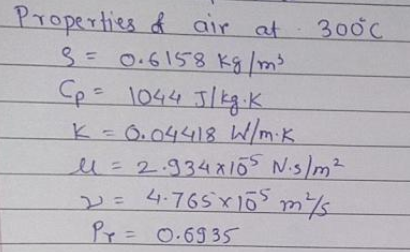 Properties of air at 300°C
ρ = 0.6158 kg/m³
Cp = 1044 J/kg.K
K = 0.04418 W/m.K
μ = 2.934x10⁻⁵ N.s/m²
ν = 4.765x10⁻⁵ m²/s
Pr = 0.6935